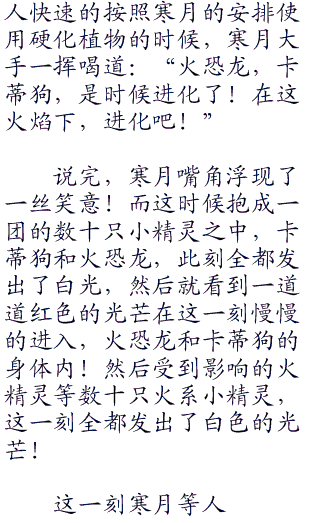 人快速的按照寒月的安排使
用硬化植物的时候，寒月大
手一挥喝道：“火恐龙，卡
蒂狗，是时候进化了！在这
火焰下，进化吧！”
说完，寒月嘴角浮现了
一丝笑意！而这时候抱成一
团的数十只小精灵之中，卡
蒂狗和火恐龙，此刻全都发
出了白光，然后就看到一道
道红色的光芒在这一刻慢慢
的进入，火恐龙和卡蒂狗的
身体内！然后受到影响的火
精灵等数十只火系小精灵，
这一刻全都发出了白色的光
芒！
这一刻寒月等人